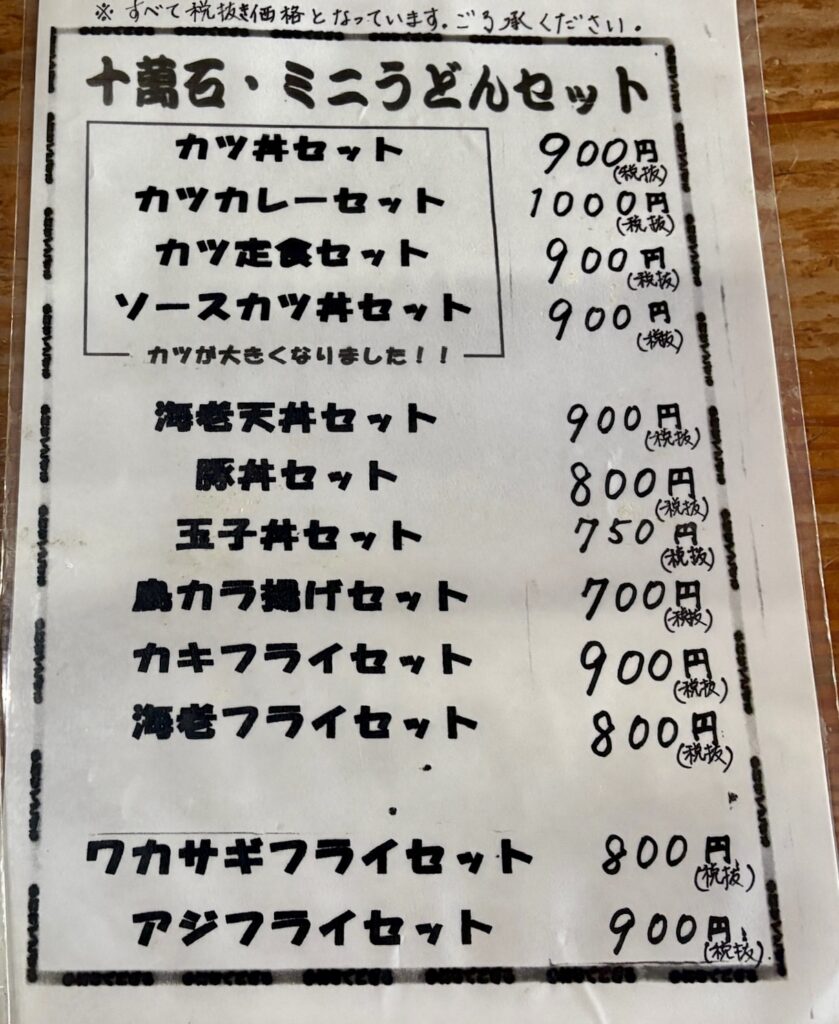 ※すべて税抜き価格となっています。ご了承ください。
十萬石・ミニうどんセット
カツ丼セット 900円(税抜)
カツカレーセット 1000円(税抜)
カツ定食セット 900円(税抜)
ソースカツ丼セット 900円(税抜)
カツが大きくなりました!!
海老天丼セット 900円(税抜)
豚丼セット 800円(税抜)
玉子丼セット 750円(税抜)
鳥カラ揚げセット 700円(税抜)
カキフライセット 900円(税抜)
海老フライセット 800円(税抜)
ワカサギフライセット 800円(税抜)
アジフライセット 900円(税抜)